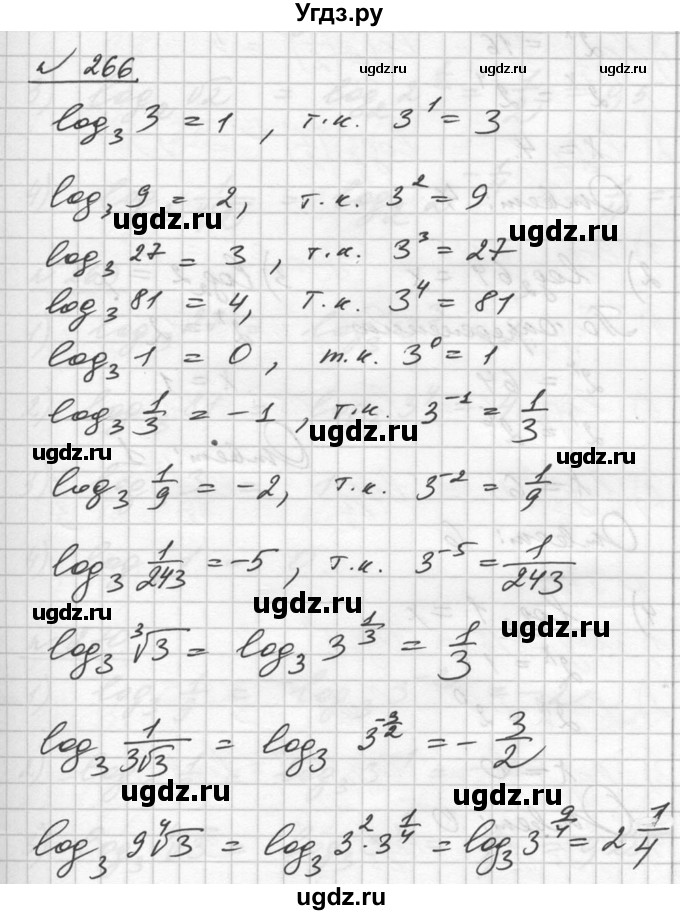 Угдз.ру
№ 266.
ugdz.ru ugdz.ru ugdz.ru
log₃ 3 = 1, т.к. 3¹ = 3
log₃ 9 = 2, т.к. 3² = 9
ugdz.ru ugdz.ru
log₃ 27 = 3, т.к. 3³ = 27
log₃ 81 = 4, т.к. 3⁴ = 81
log₃ 1 = 0, т.к. 3⁰ = 1
log₃ 1/3 = -1, т.к. 3⁻¹ = 1/3
ugdz.ru ugdz.ru ugdz.ru
log₃ 1/9 = -2, т.к. 3⁻² = 1/9
log₃ 1/243 = -5, т.к. 3⁻⁵ = 1/243
ugdz.ru ugdz.ru ugdz.ru
log₃ ∛3 = log₃ 3^(1/3) = 1/3
log₃ 1/(3√3) = log₃ 3^(-3/2) = -3/2
ugdz.ru ugdz.ru ugdz.ru
log₃ 9∜3 = log₃ 3²·3^(1/4) = log₃ 3^(9/4) = 2 1/4
ugdz.ru